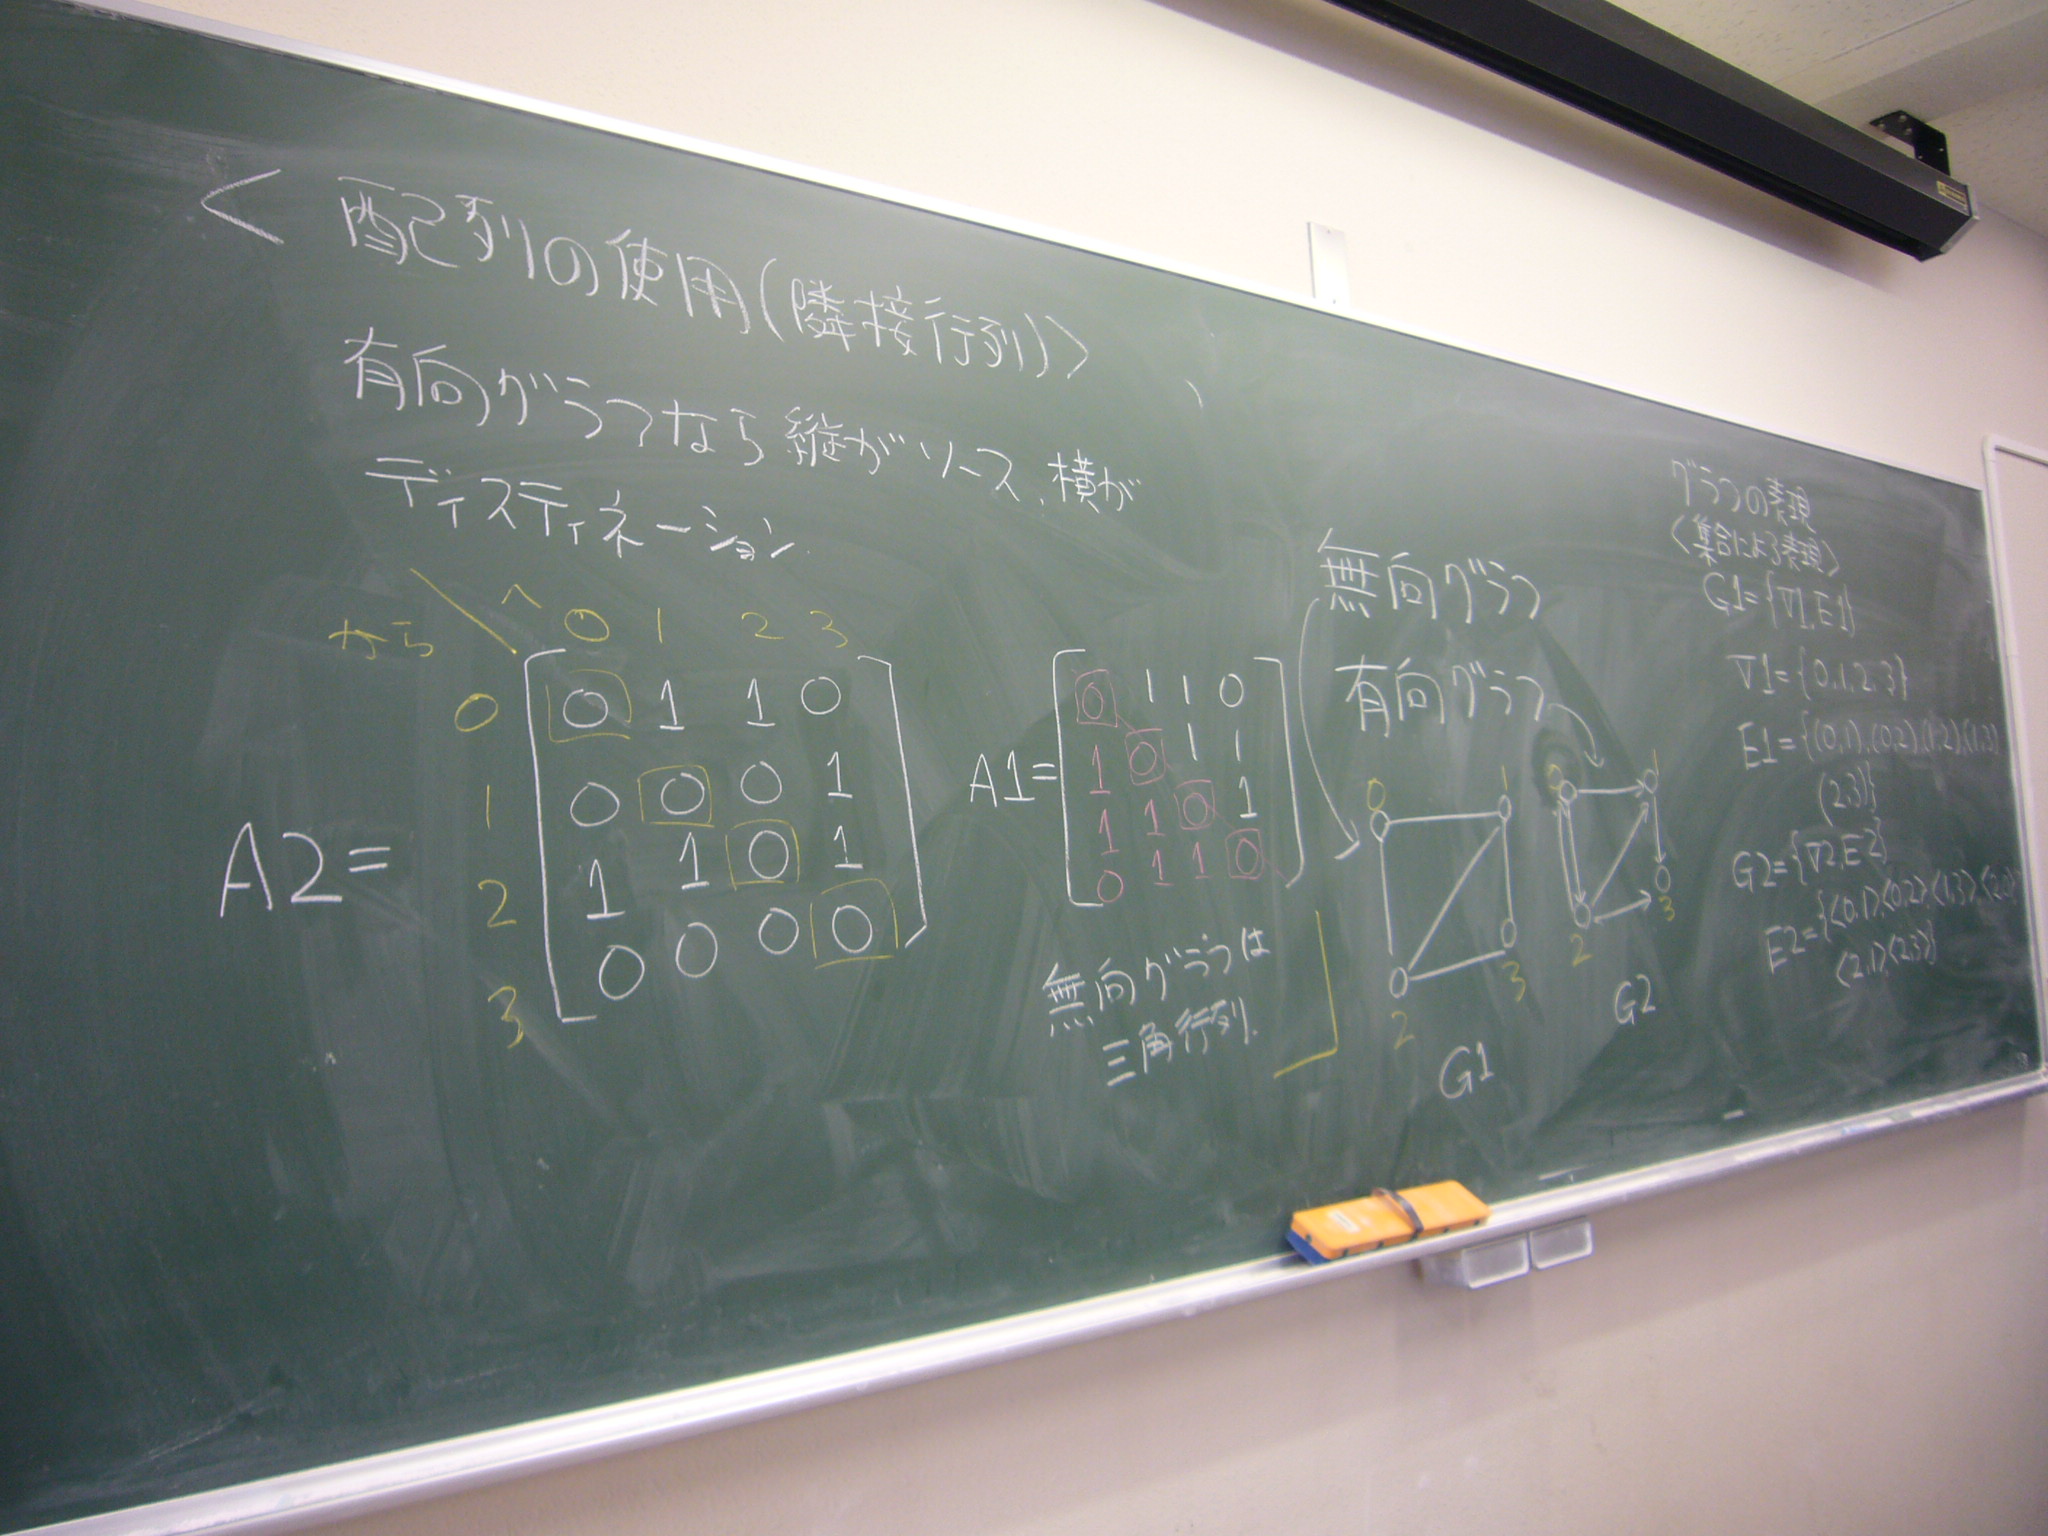 <配列の使用(隣接行列)>
有向グラフなら縦がソース、横が
ディスティネーション.
から\へ 0 1 2 3
A2=
0 [0 1 1 0
1 0 0 0 1
2 1 1 0 1
3 0 0 0 0]
A1=
[0 1 1 0
1 0 1 1
1 1 0 1
0 1 1 0]
無向グラフは
三角行列.
無向グラフ
有向グラフ
0 1
2 3
G1
1
2 3
G2
グラフの表現
<集合による表現>
G1={V1,E1}
V1={0,1,2,3}
E1={(0,1),(0,2),(1,2),(1,3)
(2,3)}
G2={V2,E2}
E2={<0,1>,<0,2>,<1,3>,<2,0>
<2,1>,<2,3>}